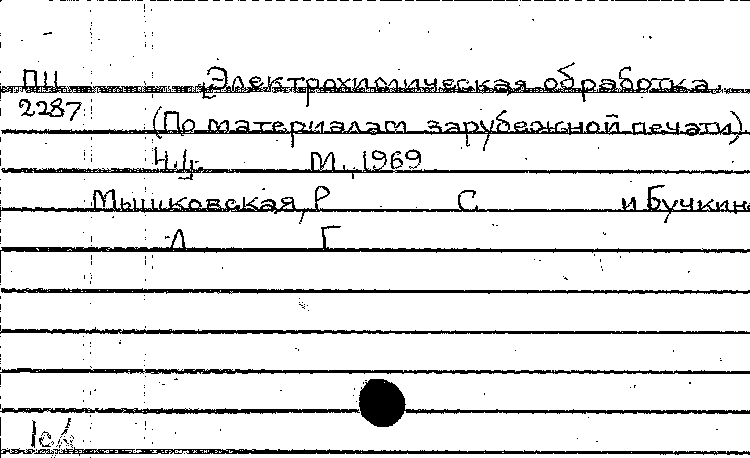 ПЦ Электрохимическая обработка.
2287 (По материалам зарубежной печати)
Ч.1. М., 1969
Мышковская, Р С и Бучкин
Л Г